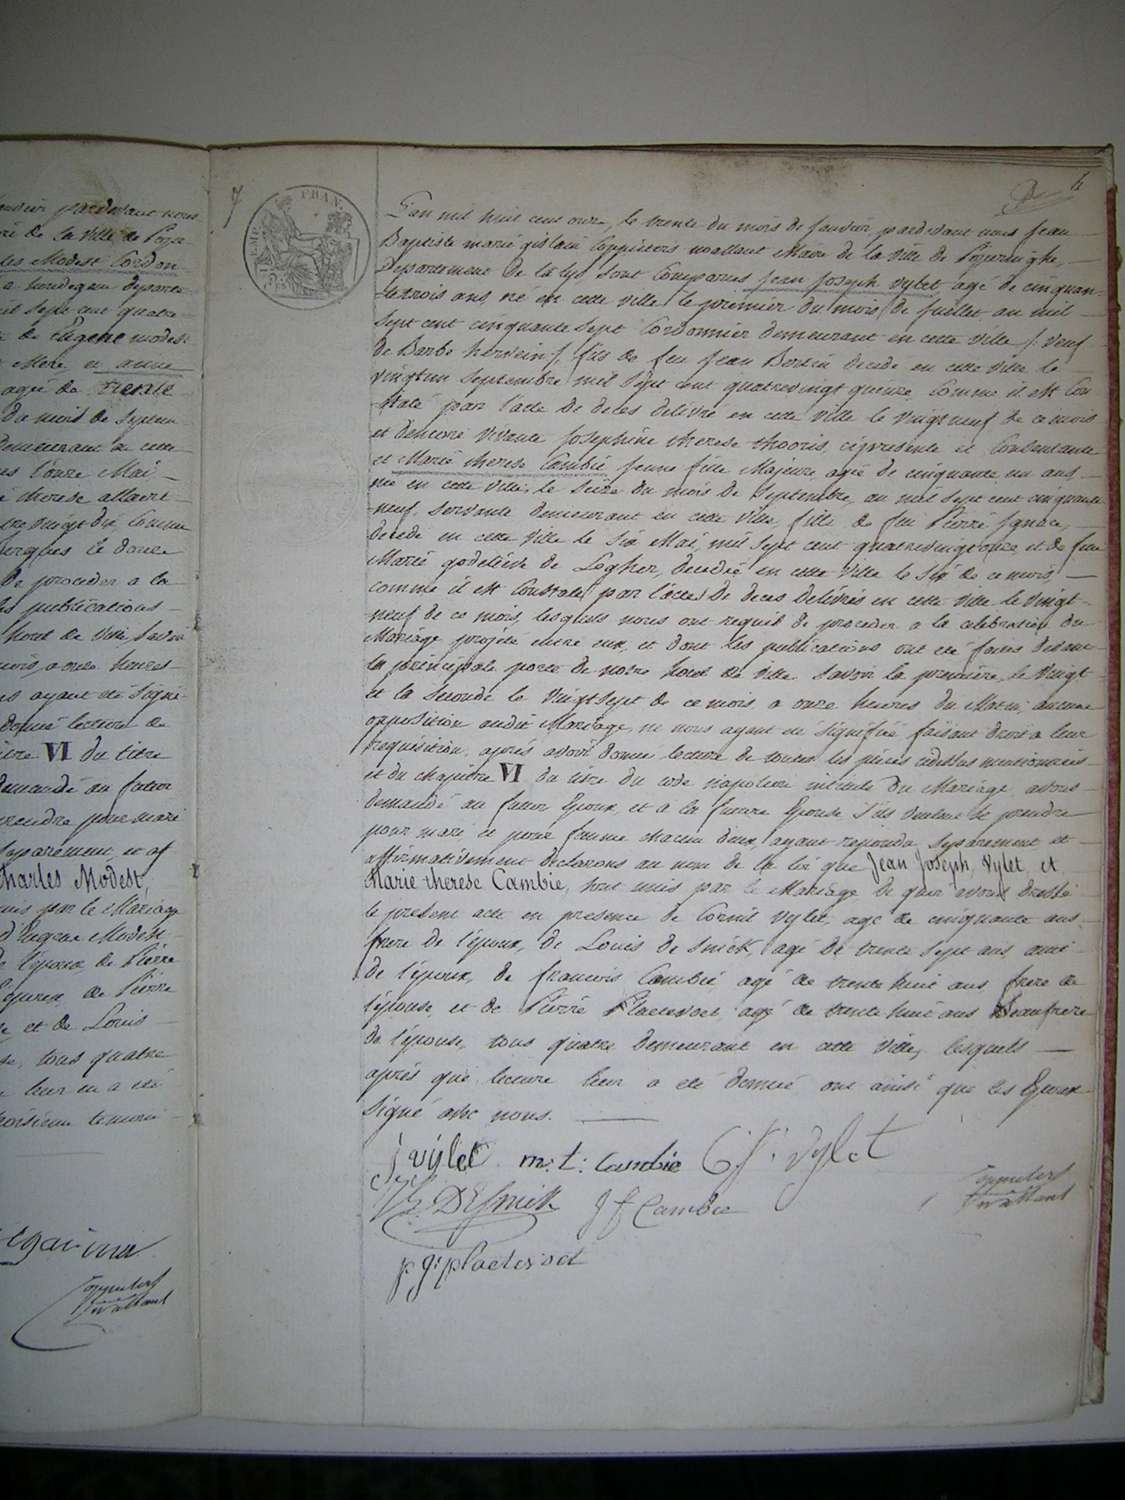 anvier pardevant nous
ire de la ville de Pope-
les Modest Cordon-
a houdegem departe-
mil sept cent quatre-
de Eugene modest
Mere et anne
agée de trente
du mois de Septem-
demeurant en cette
therese allaert
vingt dix Comme
Berques le douze
de proceder a la
publications
hotel de ville, Savoir
mois, a onze heures
ayant été Signi-
donné lecture de
VI du titre
demandé au futur
prendre pour mari
Separement et af-
Charles Modest,
unis par le Mariage
d'Eugene Modest
de l'epoux, de Pierre
l'epoux, de Pierre
et de Louis
tous quatre
leur en a été
troisieme temoin
Coppieters
Wallant
7
TIMBRE
FRAN.
6
L'an mil huit cent onze, le trente du mois de Janvier pardevant nous Jean
Baptiste marie gislain Coppieters wallant Maire de la ville de Poperinghe,
Departement de la Lys sont Comparus Jean Joseph Vylet agé de cinquan-
-te trois ans, né en cette ville le premier du mois de Juillet an mil
Sept cent cinquante sept Cordonnier demeurant en cette ville /: veuf
de Barbe herwein :/ fils de feu Jean Bertin decedé en cette ville le
vingt un Septembre mil Sept cent quatrevingt quinze, Comme il est Con-
-staté par l'acte de deces delivré en cette ville le vingt neuf de ce mois
et d'encore vivante Josephine therese thooris, ci presente et Consentante
et Marie therese Cambié Jeune fille Majeure, agée de cinquante un ans,
née en cette ville, le Seize du mois de Septembre, an mil Sept cent cinquante
neuf, Servante demeurant en cette ville, fille de feu Pierre Ignace,
decedé en cette ville le Six Mai, mil Sept cent quatrevingt onze, et de feue
Marie godelieve de Legher, decedée en cette ville le Six de ce mois,
comme il est Constaté par l'actes de deces delivrés en cette ville le vingt-
neuf de ce mois, lesquels nous ont requis de proceder a la celebration du
Mariage projeté entre eux, et dont les publications ont été faites devant
la principale porte de notre hotel de ville Savoir la premiere, le vingt-
et la Seconde le vingt Sept de ce mois, a onze heures du Matin, aucune
opposition audit Mariage, ne nous ayant été Signifiée faisant droit a leur
requisition, après avoir donné lecture de toutes les pièces cidessus mentionnées
et du chapitre VI du titre du code napoleon intitulé du Mariage, avons
demandé au futur Epoux, et a la future Epouse S'ils veulent Se prendre
pour mari et pour femme chacun d'eux ayant repondu Separement et
affirmativement declarons au nom de la loi que Jean Joseph, Vylet, et
Marie therese Cambie, Sont unis par le Mariage de quoi avons dressé
le present acte en presence de Cornil Vylet, agé de cinquante ans
frere de l'époux, de Louis de Snick, agé de trente Sept ans, ami
de l'époux, de francois Cambié, agé de trente huit ans, frere de
l'épouse, et de Pierre Plaetevoet, agé de trente huit ans Beaufrere
de l'épouse, tous quatre demeurant en cette ville, lesquels
après que lecture leur a été donnée ont ainsi que les Epoux
signé avec nous.
J vylet m: t: Cambie C J: Vylet
L: DeSnick J f Cambie
Coppieters
Wallant
p J: plaetevoet